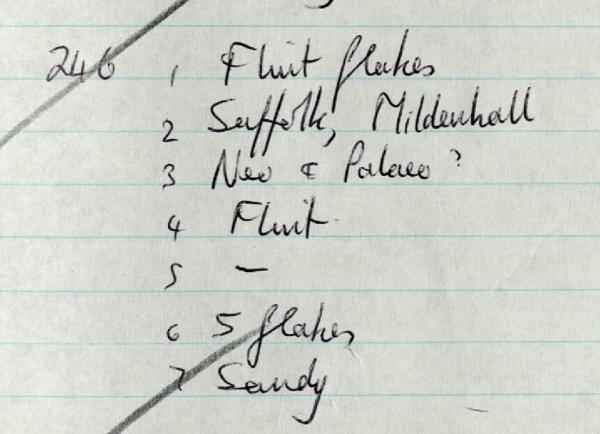 246 1 Flint flakes
2 Suffolk, Mildenhall
3 Neo & Palaeo?
4 Flint
5 —
6 5 flakes
7 Sandy